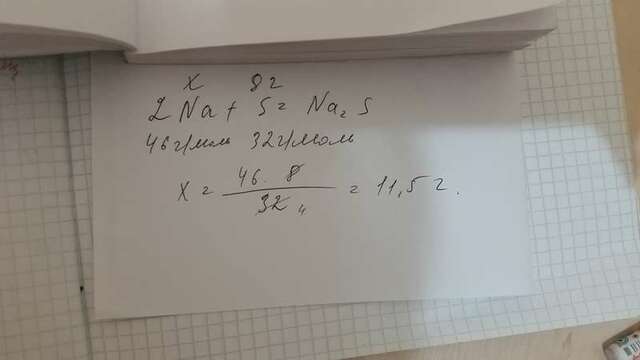 x 8 г
2 Na + S = Na₂ S
46 г/моль 32 г/моль
x = 46 · 8 / 32 4 = 11,5 г.